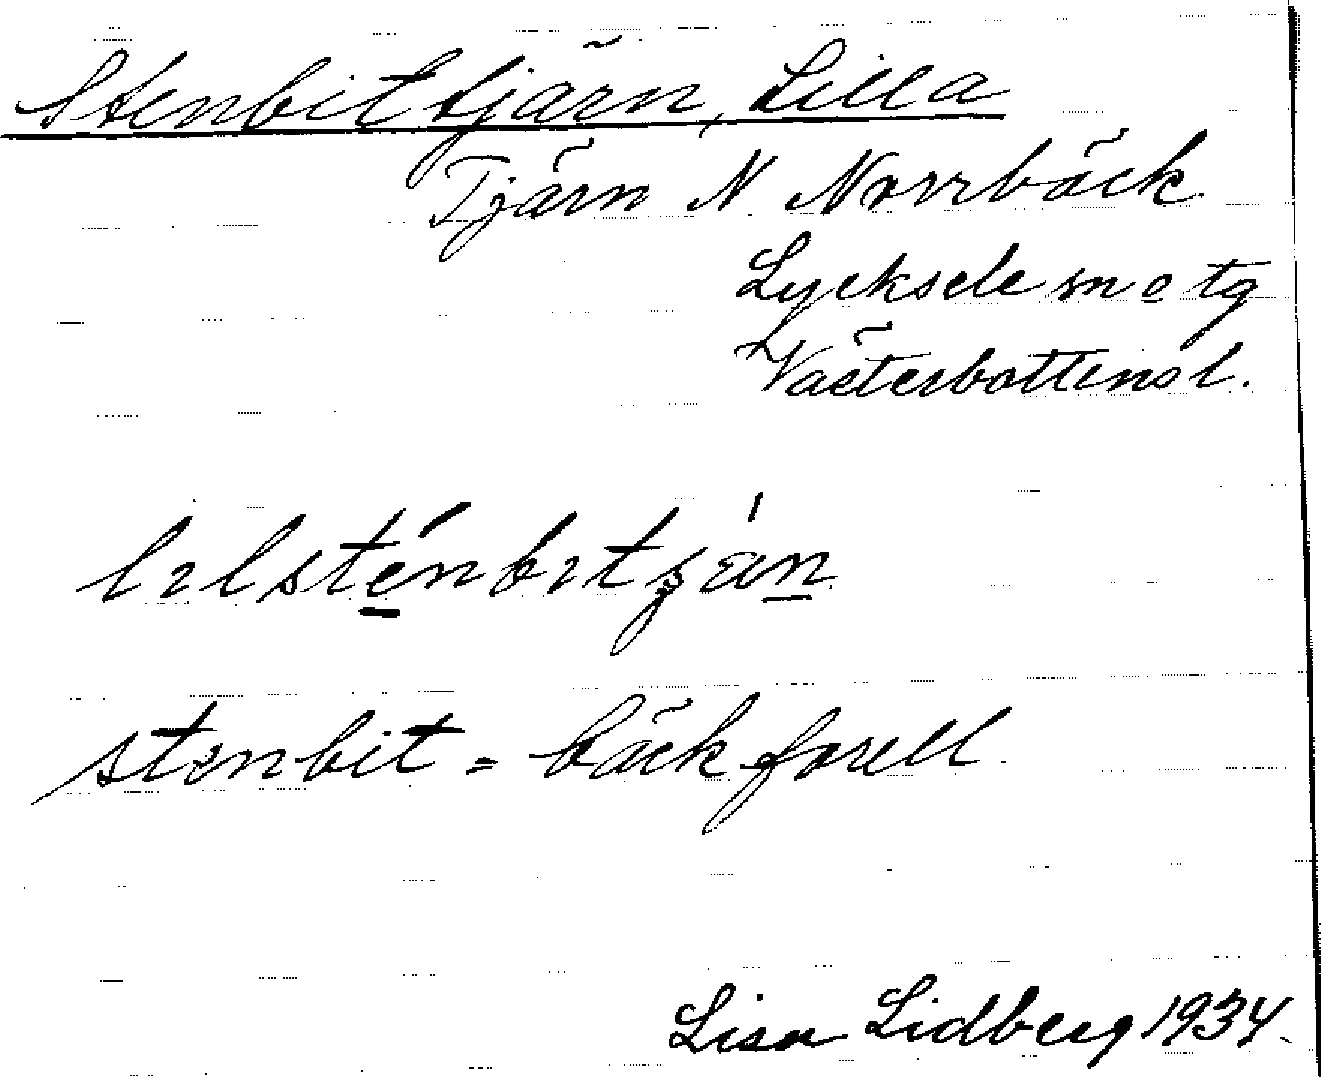 Stenbittjärn, Lilla
Tjärn N Norrbäck
Lycksele sn o tg
Västerbottens l.
stenbit = bäckforell.
Lisa Lidberg 1934.